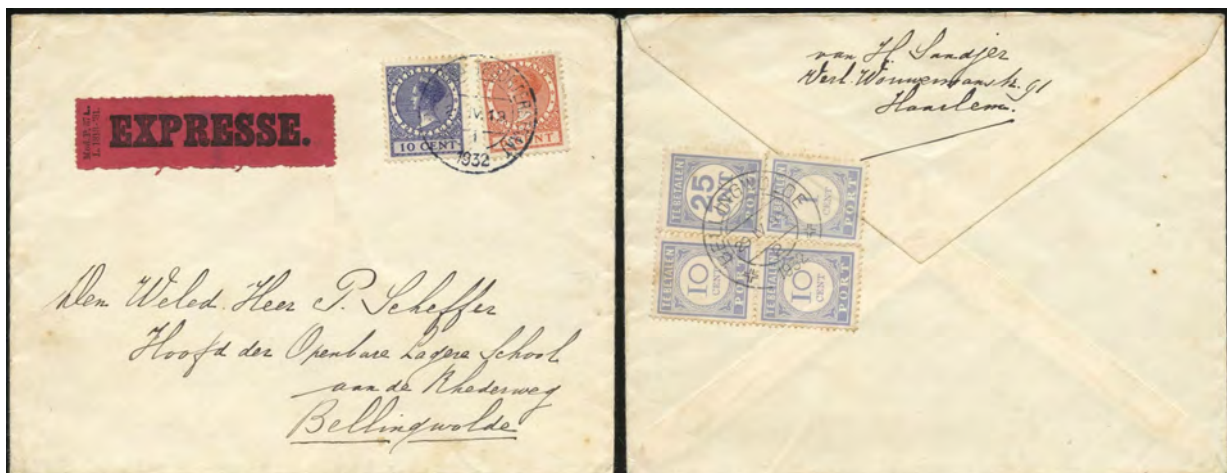 EXPRESSE.
10 CENT
NT
1932
Den Weled. Heer P. Scheffer
Hoofd der Openbare Lagere School
aan de Rhederweg
Bellingwolde
van H. Sandjer
Verl. Wouwermanstr. 91
Haarlem.
TE BETALEN 25 CENT PORT
TE BETALEN 1 CENT PORT
TE BETALEN 10 CENT PORT
TE BETALEN 10 CENT PORT